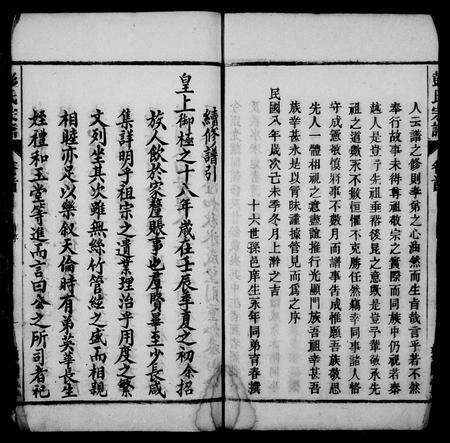 人云譜之修則孝弟之心油然而生旨哉言乎若不然
奉行故事未得尊祖敬宗之實際而同族中仍視若秦
越人是豈子先祖垂裕後昆之意歟是豈子輩敬承先
祖之道歟永不敏恒懼不克勝任然竊幸同事諸人恪
守成憲敬慎將事不數月而譜事告成惟願吾族敬思
先人一體相視之意盡誼推行光顯門族吾祖幸甚吾
族幸甚永是以冐昧謹據管見而爲之序
民國八年歲次己未季冬月上澣之吉
十六世孫邑庠生永年同弟青春撰
續修譜引
皇上御極之十八年歲在壬辰季夏之初余招
族人飲於家釐賬事也羣賢畢至少長咸
集詳明乎祖宗之遺業理治乎用度之繁
文列坐其次雖無絲竹管絃之盛而相親
相睦亦足以樂叙天倫時有弟英華長生
姪禮和玉堂等進而言曰公之所司者祀